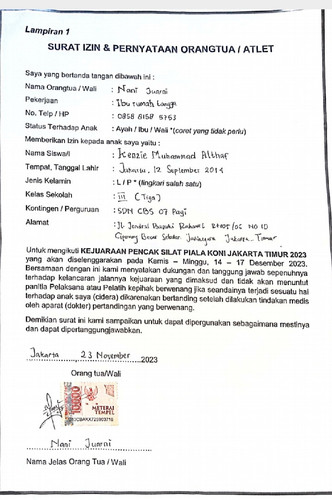 Lampiran 1
SURAT IZIN & PERNYATAAN ORANGTUA / ATLET
Saya yang bertanda tangan dibawah ini :
Nama Orangtua / Wali : Nani Juarni
Pekerjaan : Ibu rumah tangga
No. Telp / HP : 0858 8158 5763
Status Terhadap Anak : Ayah / Ibu / Wali *(coret yang tidak perlu)
Memberikan Izin kepada anak saya yaitu :
Nama Siswa/i : Kenzie Muhammad Althaf
Tempat, Tanggal Lahir : Jakarta, 12 September
Jenis Kelamin : L / P * (lingkari salah satu)
Kelas Sekolah : III (Tiga)
Kontingen / Perguruan : SDN CBS 07 Pagi
Alamat : Jl Jendral Basuki Rahmat
Cipinang Besar Selatan Jatinegara Jakarta Timur
Untuk mengikuti KEJUARAAN PENCAK SILAT PIALA KONI JAKARTA TIMUR 2023
yang akan diselenggarakan pada Kamis – Minggu, 14 – 17 Desember 2023.
Bersamaan dengan ini kami menyatakan dukungan dan tanggung jawab sepenuhnya
terhadap kelancaran jalannya kejuaraan yang dimaksud dan tidak akan menuntut
panitia Pelaksana atau Pelatih kepihak berwenang jika seandainya terjadi sesuatu hal
terhadap anak saya (cidera) dikarenakan bertanding setelah dilakukan tindakan medis
oleh aparat (dokter) pertandingan yang berwenang.
Demikian surat ini kami sampaikan untuk dapat dipergunakan sebagaimana mestinya
dan dapat dipertanggungjawabkan.
Jakarta, 23 November 2023
Orang tua/Wali
10000
METERAI
TEMPEL
Nani Juarni
Nama Jelas Orang Tua / Wali